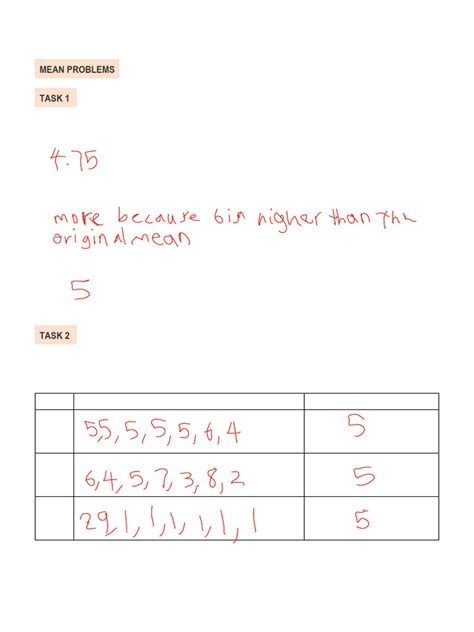 MEAN PROBLEMS
TASK 1
4.75
more because 6 is higher than the
original mean
5
TASK 2
5,5, 5, 5, 5, 6, 4 5
6,4, 5, 7, 3, 8, 2 5
29, 1, 1, 1, 1, 1, 1 5